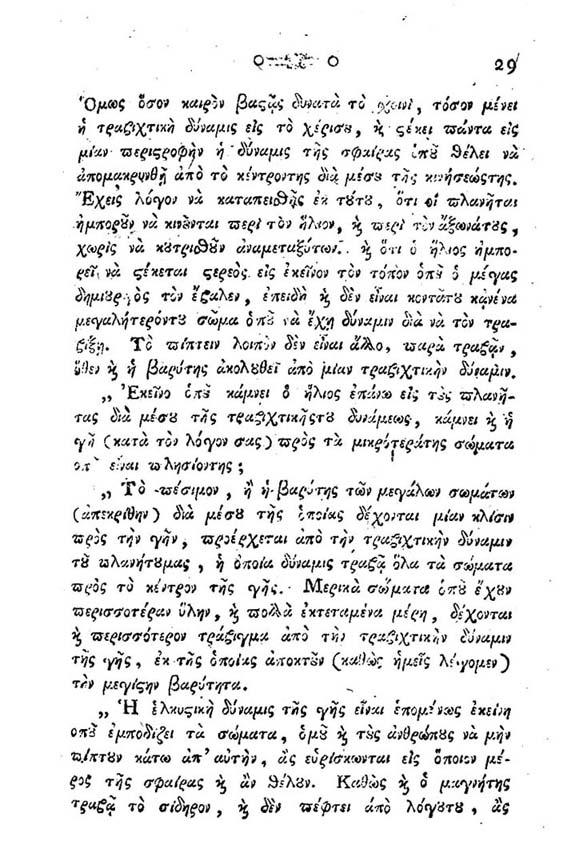 29
Ὅμως ὅσον καιρὸν βαϛᾷς δυνατὰ τὸ σχοινὶ, τόσον μένει
ἡ τραβιχτικὴ δύναμις εἰς τὸ χέρισȣ, ϗ ϛέκει πάντα εἰς
μίαν περιϛροφὴν ἡ δύναμις τῆς σφαίρας ὁπȣ̃ θέλει νὰ
ἀπομακρυνθῇ ἀπὸ τὸ κέντροντης διὰ μέσȣ τῆς κινήσεώςτης.
Ἔχεις λόγον νὰ καταπεισθῇς ἐκ τȣ́τȣ, ὅτι οἱ πλανῆται
ἠμπορȣ̃ν νὰ κινȣ̃νται περὶ τὸν ἥλιον, ϗ περὶ τὸν ἄξωνάτȣς,
χωρὶς νὰ κȣτριθȣ̃ν ἀναμεταξύτων. ϗ ὅτι ὁ ἥλιος ἠμπο-
ρεῖ νὰ ϛέκεται ϛερεὸς εἰς ἐκεῖνον τὸν τόπον ὁπȣ̃ ὁ μέγας
δημιȣργὸς τὸν ἔβαλεν, ἐπειδὴ ϗ δὲν εἶναι κοντάτȣ κᾀνένα
μεγαλήτερόντȣ σῶμα ὁπȣ̃ νὰ ἔχῃ δύναμιν διὰ νὰ τὸν τρα-
βίξῃ. Τὸ πίπτειν λοιπὸν δὲν εἶναι ἄλλο, παρὰ τραβᾷν,
ὅθεν ϗ ἡ βαρύτης ἀκολȣθεῖ ἀπὸ μίαν τραβιχτικὴν δύναμιν.
„ Ἐκεῖνο ὁπȣ̃ κάμνει ὁ ἥλιος ἐπάνω εἰς τȣ̀ς πλανή-
τας διὰ μέσȣ τῆς τραβιχτικῆςτȣ δυνάμεως, κάμνει ϗ ἡ
γῆ (κατὰ τὸν λόγον σας) πρὸς τὰ μικρότεράτης σώματα
ὁπ᾽ εἶναι πλησίοντης;
„ Τὸ πέσιμον, ἢ ἡ βαρύτης τῶν μεγάλων σωμάτων
(ἀπεκρίθην) διὰ μέσȣ τῆς ὁποίας δέχονται μίαν κλίσιν
πρὸς τὴν γῆν, προέρχεται ἀπὸ τὴν τραβιχτικὴν δύναμιν
τȣ̃ πλανήτȣμας, ἡ ὁποία δύναμις τραβᾷ ὅλα τὰ σώματα
πρὸς τὸ κέντρον τῆς γῆς. Μερικὰ σώματα ὁπȣ̃ ἔχȣν
περισσοτέραν ὕλην, ϗ πολλὰ ἐκτεταμένα μέρη, δέχονται
ϗ περισσότερον τράβιγμα ἀπὸ τὴν τραβιχτικὴν δύναμιν
τῆς γῆς, ἐκ τῆς ὁποίας ἀποκτȣ̃ν (καθὼς ἡμεῖς λέγομεν)
τὴν μεγίϛην βαρύτητα.
„ Ἡ ἑλκυϛικὴ δύναμις τῆς γῆς εἶναι ἑπομένως ἐκείνη
ὁπȣ̃ ἐμποδίζει τὰ σώματα, ὁμȣ̃ ϗ τȣ̀ς ἀνθρώπȣς νὰ μὴν
πίπτȣν κάτω ἀπ᾽ αὐτὴν, ἂς εὑρίσκωνται εἰς ὅποιον μέ-
ρος τῆς σφαίρας ϗ ἂν θέλȣν. Καθὼς ϗ ὁ μαγνήτης
τραβᾷ τὸ σίδηρον, ϗ δὲν πέφτει ἀπὸ λόγȣτȣ, ἂς